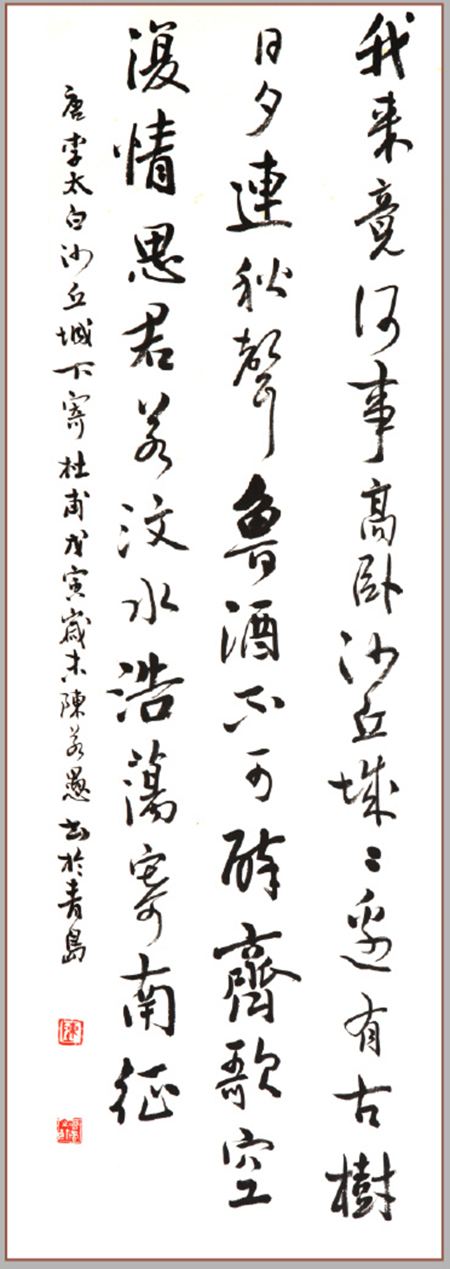 我来竟何事高卧沙丘城〻邊有古樹
日夕連秋聲魯酒不可醉齊歌空
復情思君若汶水浩蕩寄南征
唐李太白沙丘城下寄杜甫戊寅歲末陳若愚書於青島
陳